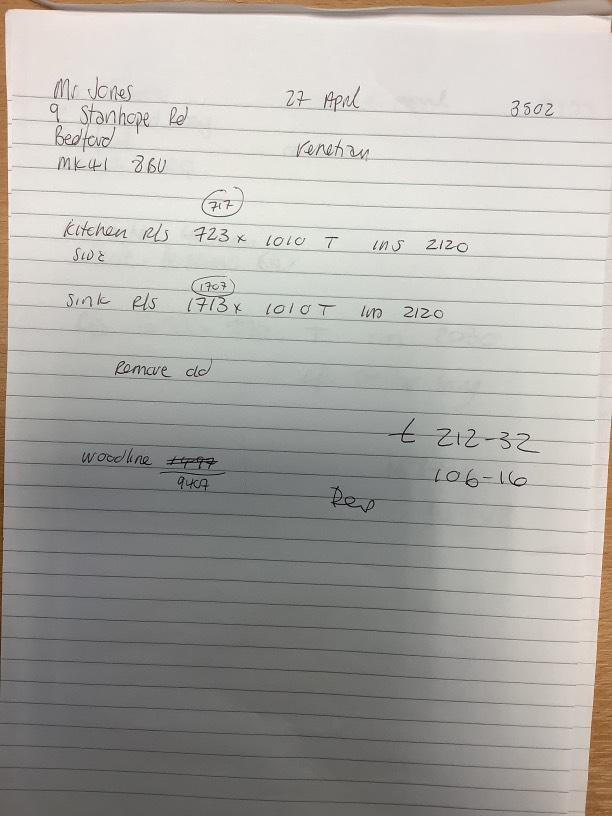 Mr Jones 27 April 3502
9 Stanhope Rd
Bedford Venetian
MK41 8BU
717
Kitchen Rls 723 x 1010 T ins 2120
side
1707
Sink Rls 1713 x 1010 T ins 2120
Remove old
£ 212-32
Woodline
9407 106-16
Dep